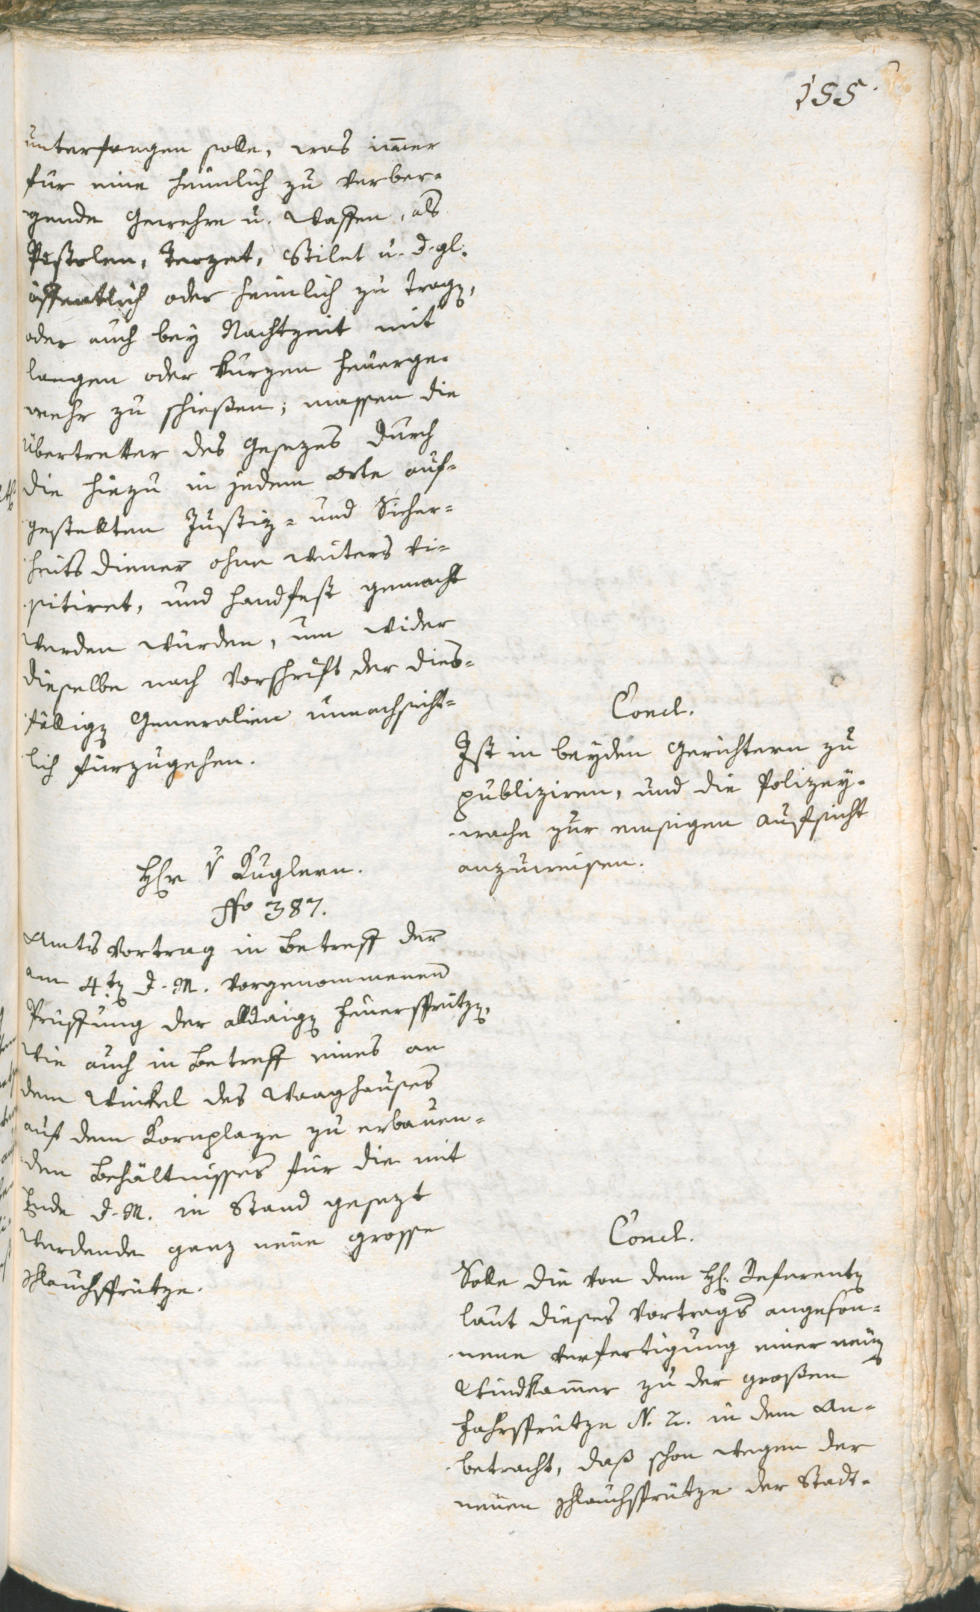 155.
unterfangen solle, was immer
für eine heimlich zu verber-
gende Gewehre u. Waffen, als
Pistolen, Terzet, Stilet u. d. gl.
öffentlich oder heimlich zu tragen,
oder auch bey Nachtzeit mit
langen oder kurzen Feuerge-
wehr zu schießen; massen die
Übertretter des Gesezes durch
die hiezu in jedem Orte auf-
gestellten Justiz- und Sicher-
heits diener ohne weiters vi-
sitiret, und handfest gemacht
werden würden, um wider
dieselbe nach Vorschrift der dies-
fälligen Generalien unnachsicht-
lich fürzugehen.
Concl.
Ist in beyden Gerichtern zu
publiziren, und die Polizey-
wache zur emsigen Aufsicht
anzuweisen.
Hr v Kuglern.
Fo 387.
Amts Vortrag in Betreff der
am 4.ten d. M. vorgenommenen
Prüffung der alldaigen Feuersprützen,
wie auch in Betreff eines an
dem Winkel des Waaghauses
auf dem Kornplaze zu erbauen-
den Behältnisses für die mit
Ende d. M. in Stand gesezt
werdende ganz neue grosse
Schlauchsprütze.
Concl.
Solle die von dem H. Referenten
laut dieses Vortrags angeson-
nene Verfertigung einer neuen
Windkammer zu der großen
Fahrsprütze N. 2. in dem An-
betracht, daß schon wegen der
neuen Schlauchsprütze der Stadt-